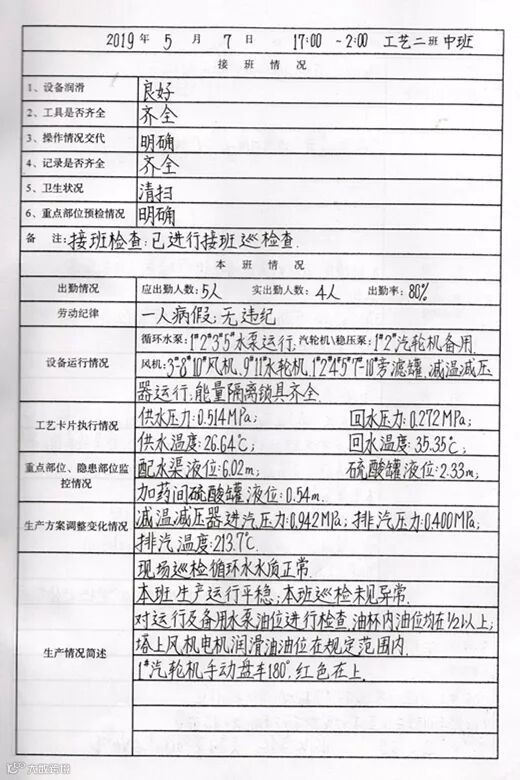 2019年 5 月 7 日 17:00 ~2:00 工艺二班中班
接 班 情 况
1、设备润滑 良好
2、工具是否齐全 齐全
3、操作情况交代 明确
4、记录是否齐全 齐全
5、卫生状况 清扫
6、重点部位预检情况 明确
备 注:接班检查:已进行接班巡检查.
本 班 情 况
出勤情况 应出勤人数:5人 实出勤人数:4人 出勤率:80%
劳动纪律 一人病假;无违纪
循环水泵:1#2#3#5#水泵运行;汽轮机\稳压泵:1#2#汽轮机备用.
设备运行情况 风机:3#-8#10#风机.9#11#水轮机.1#2#4#5#7#-10#旁滤罐.减温减压
器运行;能量隔离锁具齐全.
工艺卡片执行情况 供水压力:0.514MPa; 回水压力:0.272MPa;
供水温度:26.64℃; 回水温度:35.35℃;
重点部位、隐患部位监控情况 配水渠液位:6.02m; 硫酸罐液位:2.33m;
加药间硫酸罐液位:0.54m.
生产方案调整变化情况 减温减压器进汽压力:0.942MPa;排汽压力:0.400MPa;
排汽温度:213.7℃.
现场巡检循环水水质正常.
本班生产运行平稳;本班巡检未见异常.
对运行及备用水泵油位进行检查,油杯内油位均在1/2以上;
生产情况简述 塔上风机电机润滑油油位在规定范围内.
1#汽轮机手动盘车180°.红色在上.